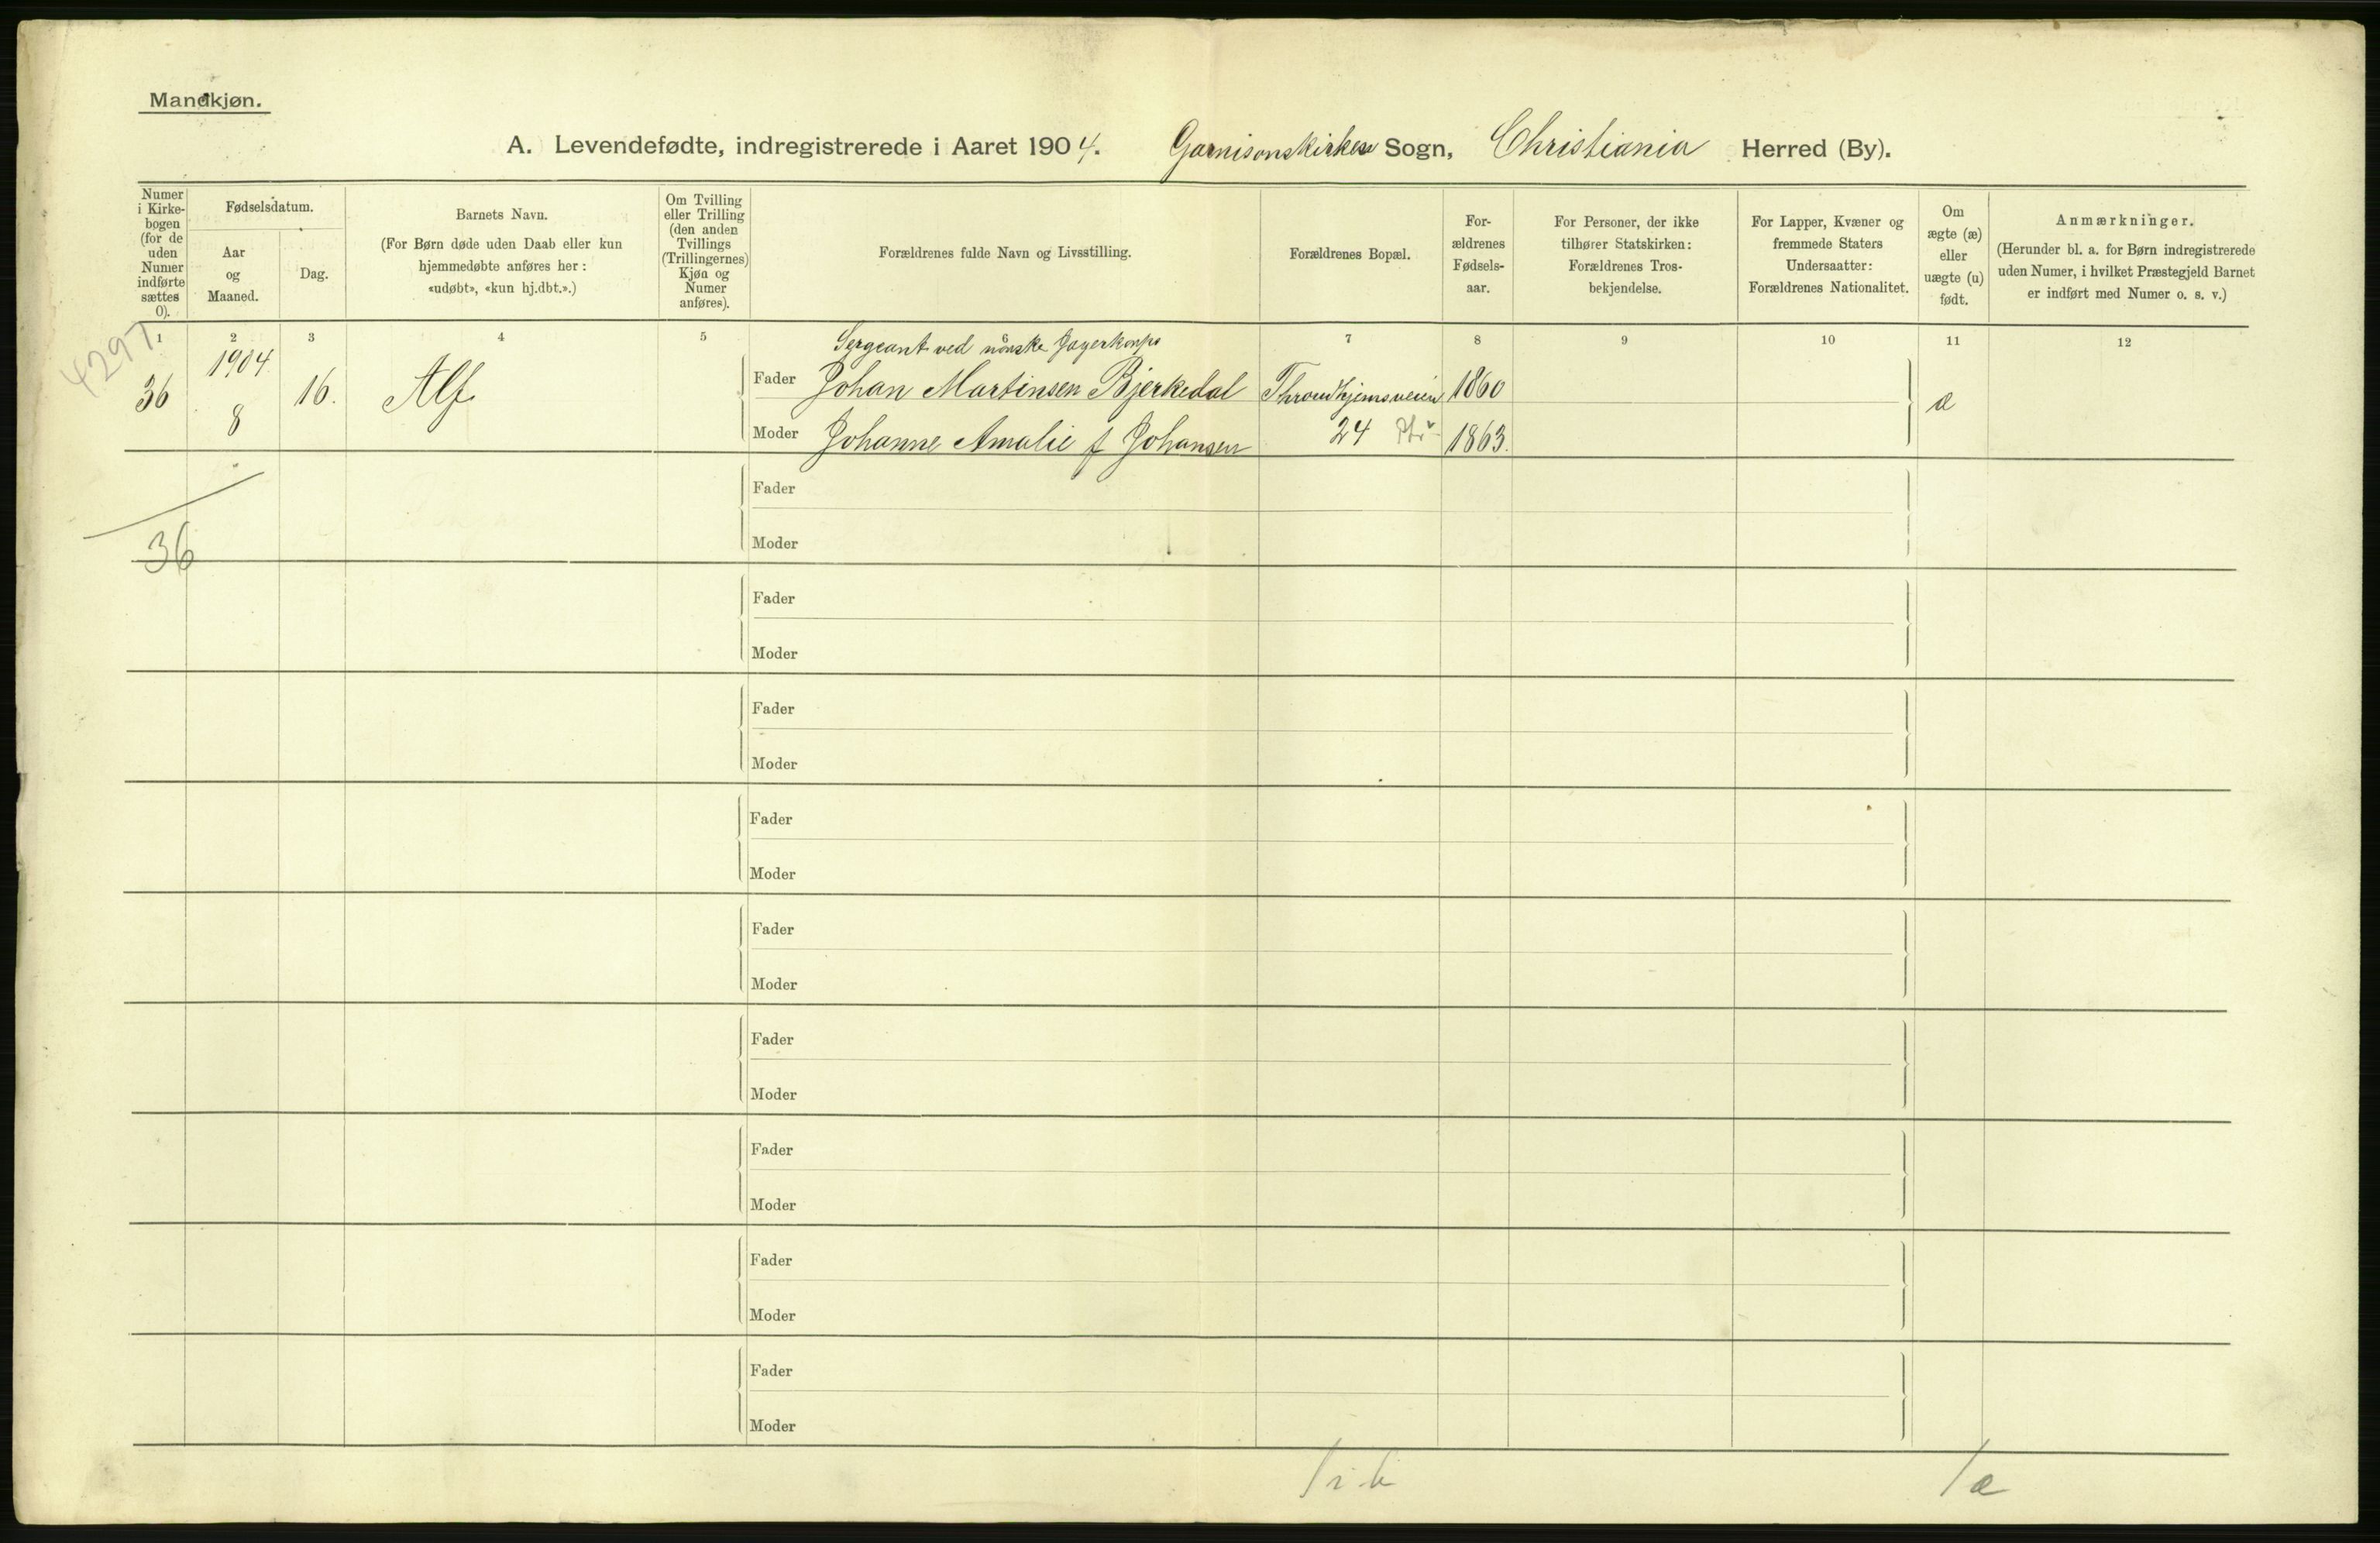 Mandkjøn.
A. Levendefødte, indregistrerede i Aaret 1904. Garnisonskirken Sogn, Christiania Herred (By).
Numer i Kirkebogen (for de uden Numer indførte sættes 0).
Fødselsdatum.
Aar og Maaned.
Dag.
Barnets Navn.
(For Børn døde uden Daab eller kun hjemmedøbte anføres her: «udøbt», «kun hj.dbt.».)
Om Tvilling eller Trilling (den anden Tvillings (Trillingernes) Kjøn og Numer anføres).
Forældrenes fulde Navn og Livsstilling.
Forældrenes Bopæl.
Forældrenes Fødselsaar.
For Personer, der ikke tilhører Statskirken: Forældrenes Trosbekjendelse.
For Lapper, Kvæner og fremmede Staters Undersaatter: Forældrenes Nationalitet.
Om ægte (æ) eller uægte (u) født.
Anmærkninger.
(Herunder bl. a. for Børn indregistrerede uden Numer, i hvilket Præstegjeld Barnet er indført med Numer o. s. v.)
1 2 3 4 5 7 8 9 10 11 12
4297
Sergeant ved norske Jægerkorps
36 1904 8 16. Alf
Fader Johan Martinsen Bjerkedal Throndhjemsveien 1860 æ
Moder Johanne Amalie f Johansen 24 1863.
36
Fader
Moder
Fader
Moder
Fader
Moder
Fader
Moder
Fader
Moder
Fader
Moder
Fader
Moder
Fader
Moder
Fader
Moder
1 i b
1 æ